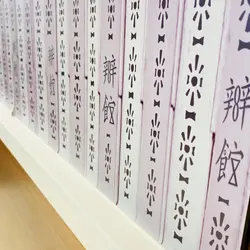 辦館
辦館
辦館